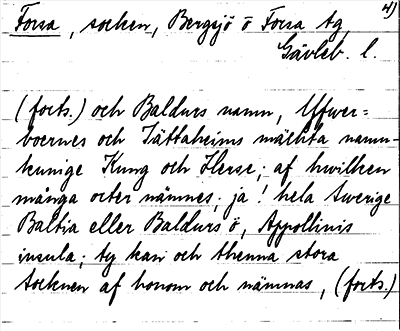 4)
Forsa, socken, Bergsjö o Forsa tg
Gävleb. l.
(forts.) och Baldurs namn, Yffwer=
boernes och Jättaheims mächta namn-
kunige Kung och Herse; af hwilken
många orter nämnes; ja! hela Swerige
Baltia eller Baldurs ö, Appollinis
insula; ty kan och thenna stora
Socknen af honom och nämnas, (forts.)